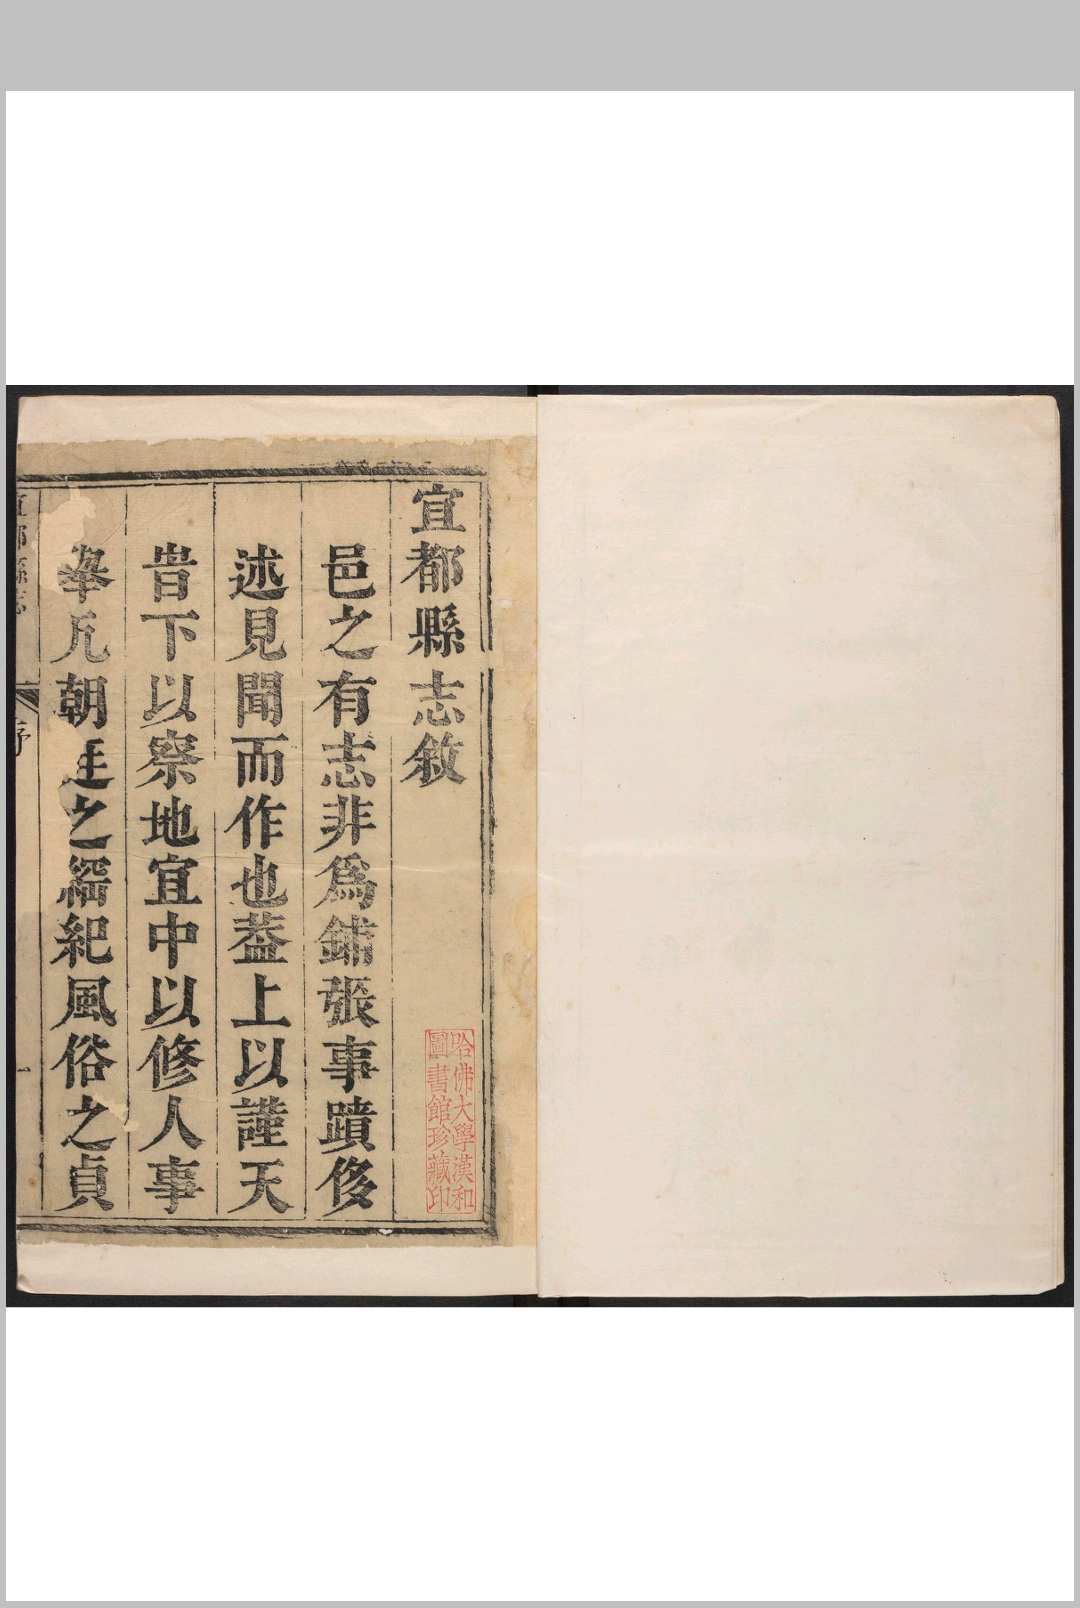 宜都縣志敘
邑之有志非爲鋪張事蹟侈
述見聞而作也葢上以謹天
旹下以察地宜中以修人事
舉凡朝廷之綱紀風俗之貞
宜都縣志
序
一
哈佛大學漢和
圖書館珍藏印